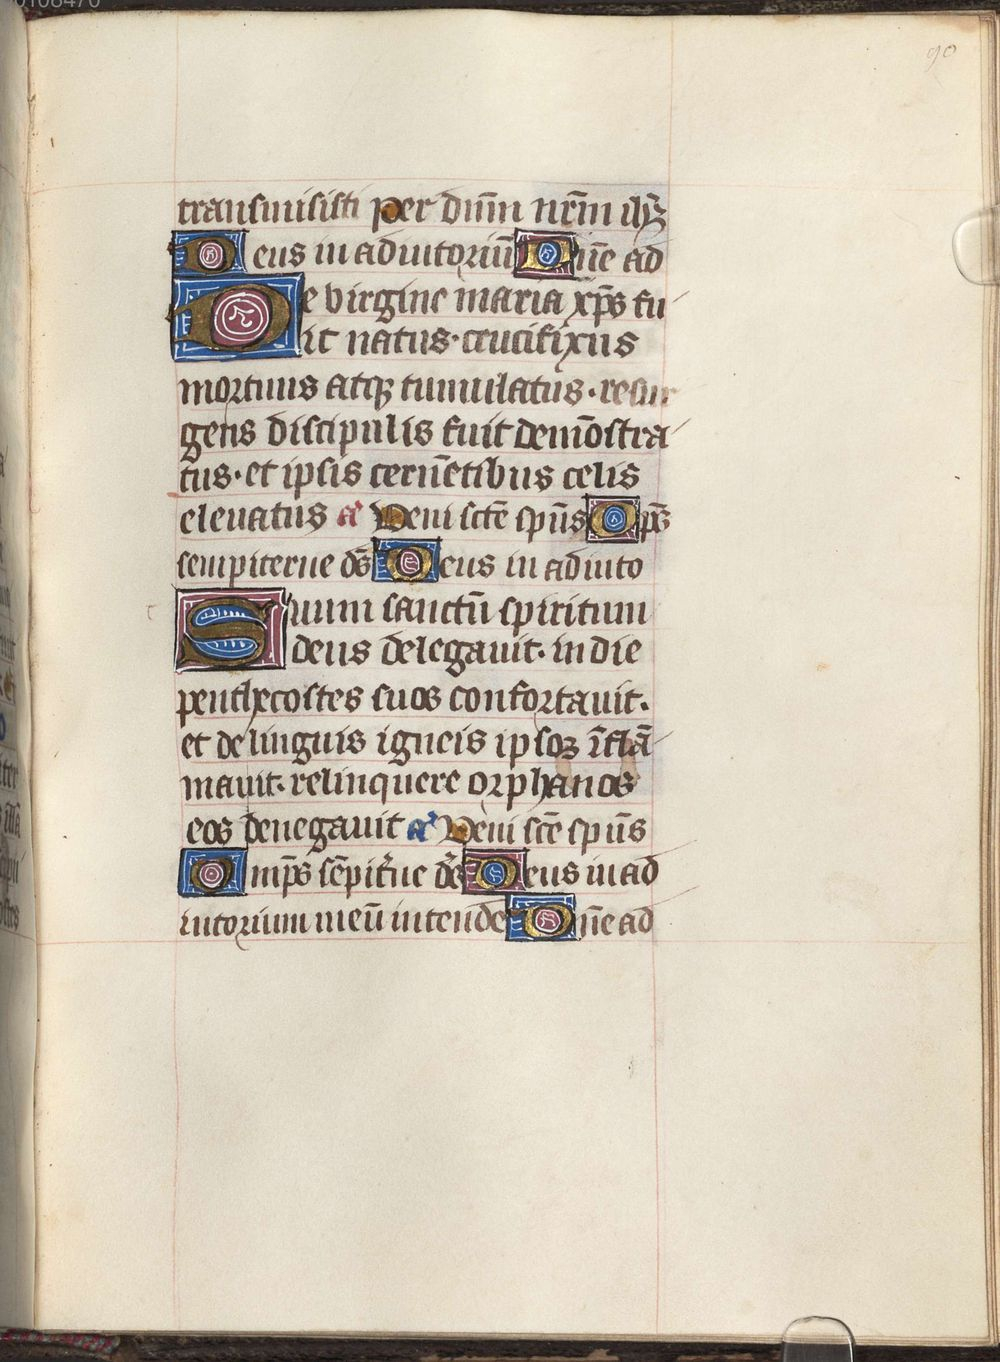 90
transmisisti per dñm nr̃m ihꝫ
Deus in adiutoriũ Dñe ad
De virgine maria xp̃s fu
it natus·crucifixus
mortuus atqꝫ tumulatus·resur
gens discipulis fuit demõstra
tus·et ipsis cernẽtibus celis
eleuatus a᷒ Veni scẽ spũs Omp̃s
sempiterne ds̃ Deus in adiuto
Suum sanctũ spiritum
deus delegauit·in die
penthecostes suos confortauit·
et de linguis igneis ipsoꝝ ĩflã
mauit·relinquere orphanos
eos denegauit a᷒ Veni scẽ spũs
Omp̃s sẽpitẽne ds̃ Deus in ad
iutorium meũ intende Dñe ad